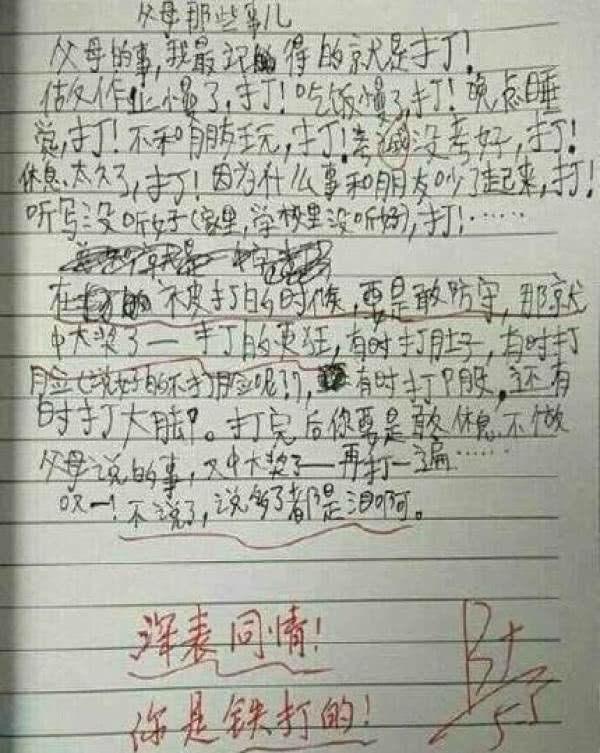 父母那些事儿
父母的事,我最记得的就是打!
做作业慢了,打!吃饭慢了,打!晚点睡
觉,打!不和朋友玩,打!考试没考好,打!
休息太久了,打!因为什么事和朋友吵了起来,打!
听写没听好(家里,学校里没听好),打!……
在被打的时候,要是敢防守,那就
中大奖了——打的更狂,有时打肚子,有时打
脸(说好的不打脸呢!?),有时打P股,还有
时打大腿。打完后你要是敢休息,不做
父母说的事,又中大奖了——再打一遍……
哎—!不说了,说多了都是泪啊。
深表同情!
你是铁打的!
B+